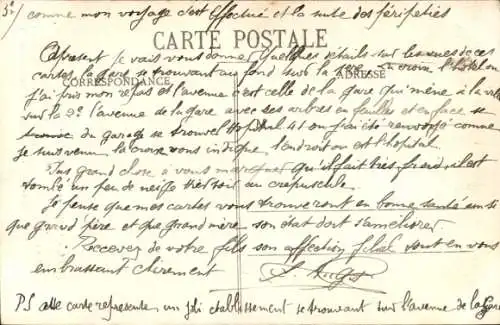 5e/ comme mon voyage s'est effectué et la suite des péripéties
CARTE POSTALE
Apresent je vais vous donner quelques détails sur les vues de ces
cartes la gare se trouvant au fond sur la 1ere l'hôtel ou
CORRESPONDANCE ADRESSE
j'ai pris mon repas et l'avenue c'est celle de la gare qui mène à la
sur la 2e l'avenue de la gare avec ses arbres en feuilles et en face se
du garage se trouve l'hopital 41 ou j'ai été renvoyé comme
je suis venu la croix vous indique l'endroit ou est l'hopital.
Pas grand chose à vous marquer qu'il fait très froid, il est
tombé un peu de neige hier soir au crépuscule.
Je pense que mes cartes vous trouveront en bonne santé ainsi
que grand père et que grand mère son état doit s'améliorer
Recevez de votre fils son affection filial tout en vous
embrassant chèrement
PS cette carte represente un joli etablissement se trouvant sur l'avenue de la Gare